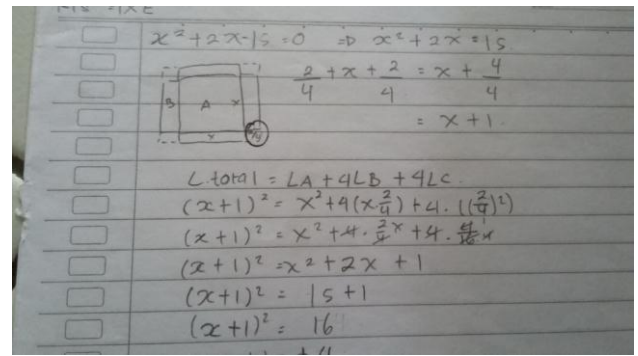 x² + 2x - 15 = 0 ⇒ x² + 2x = 15
2/4 + x + 2/4 = x + 4/4
= x + 1
B A x
x
L total = LA + 4LB + 4LC
(x+1)² = x² + 4(x 2/4) + 4 . ((2/4)²)
(x+1)² = x² + 4 . 2/4 x + 4 . 4/16
(x+1)² = x² + 2x + 1
(x+1)² = 15 + 1
(x+1)² = 16